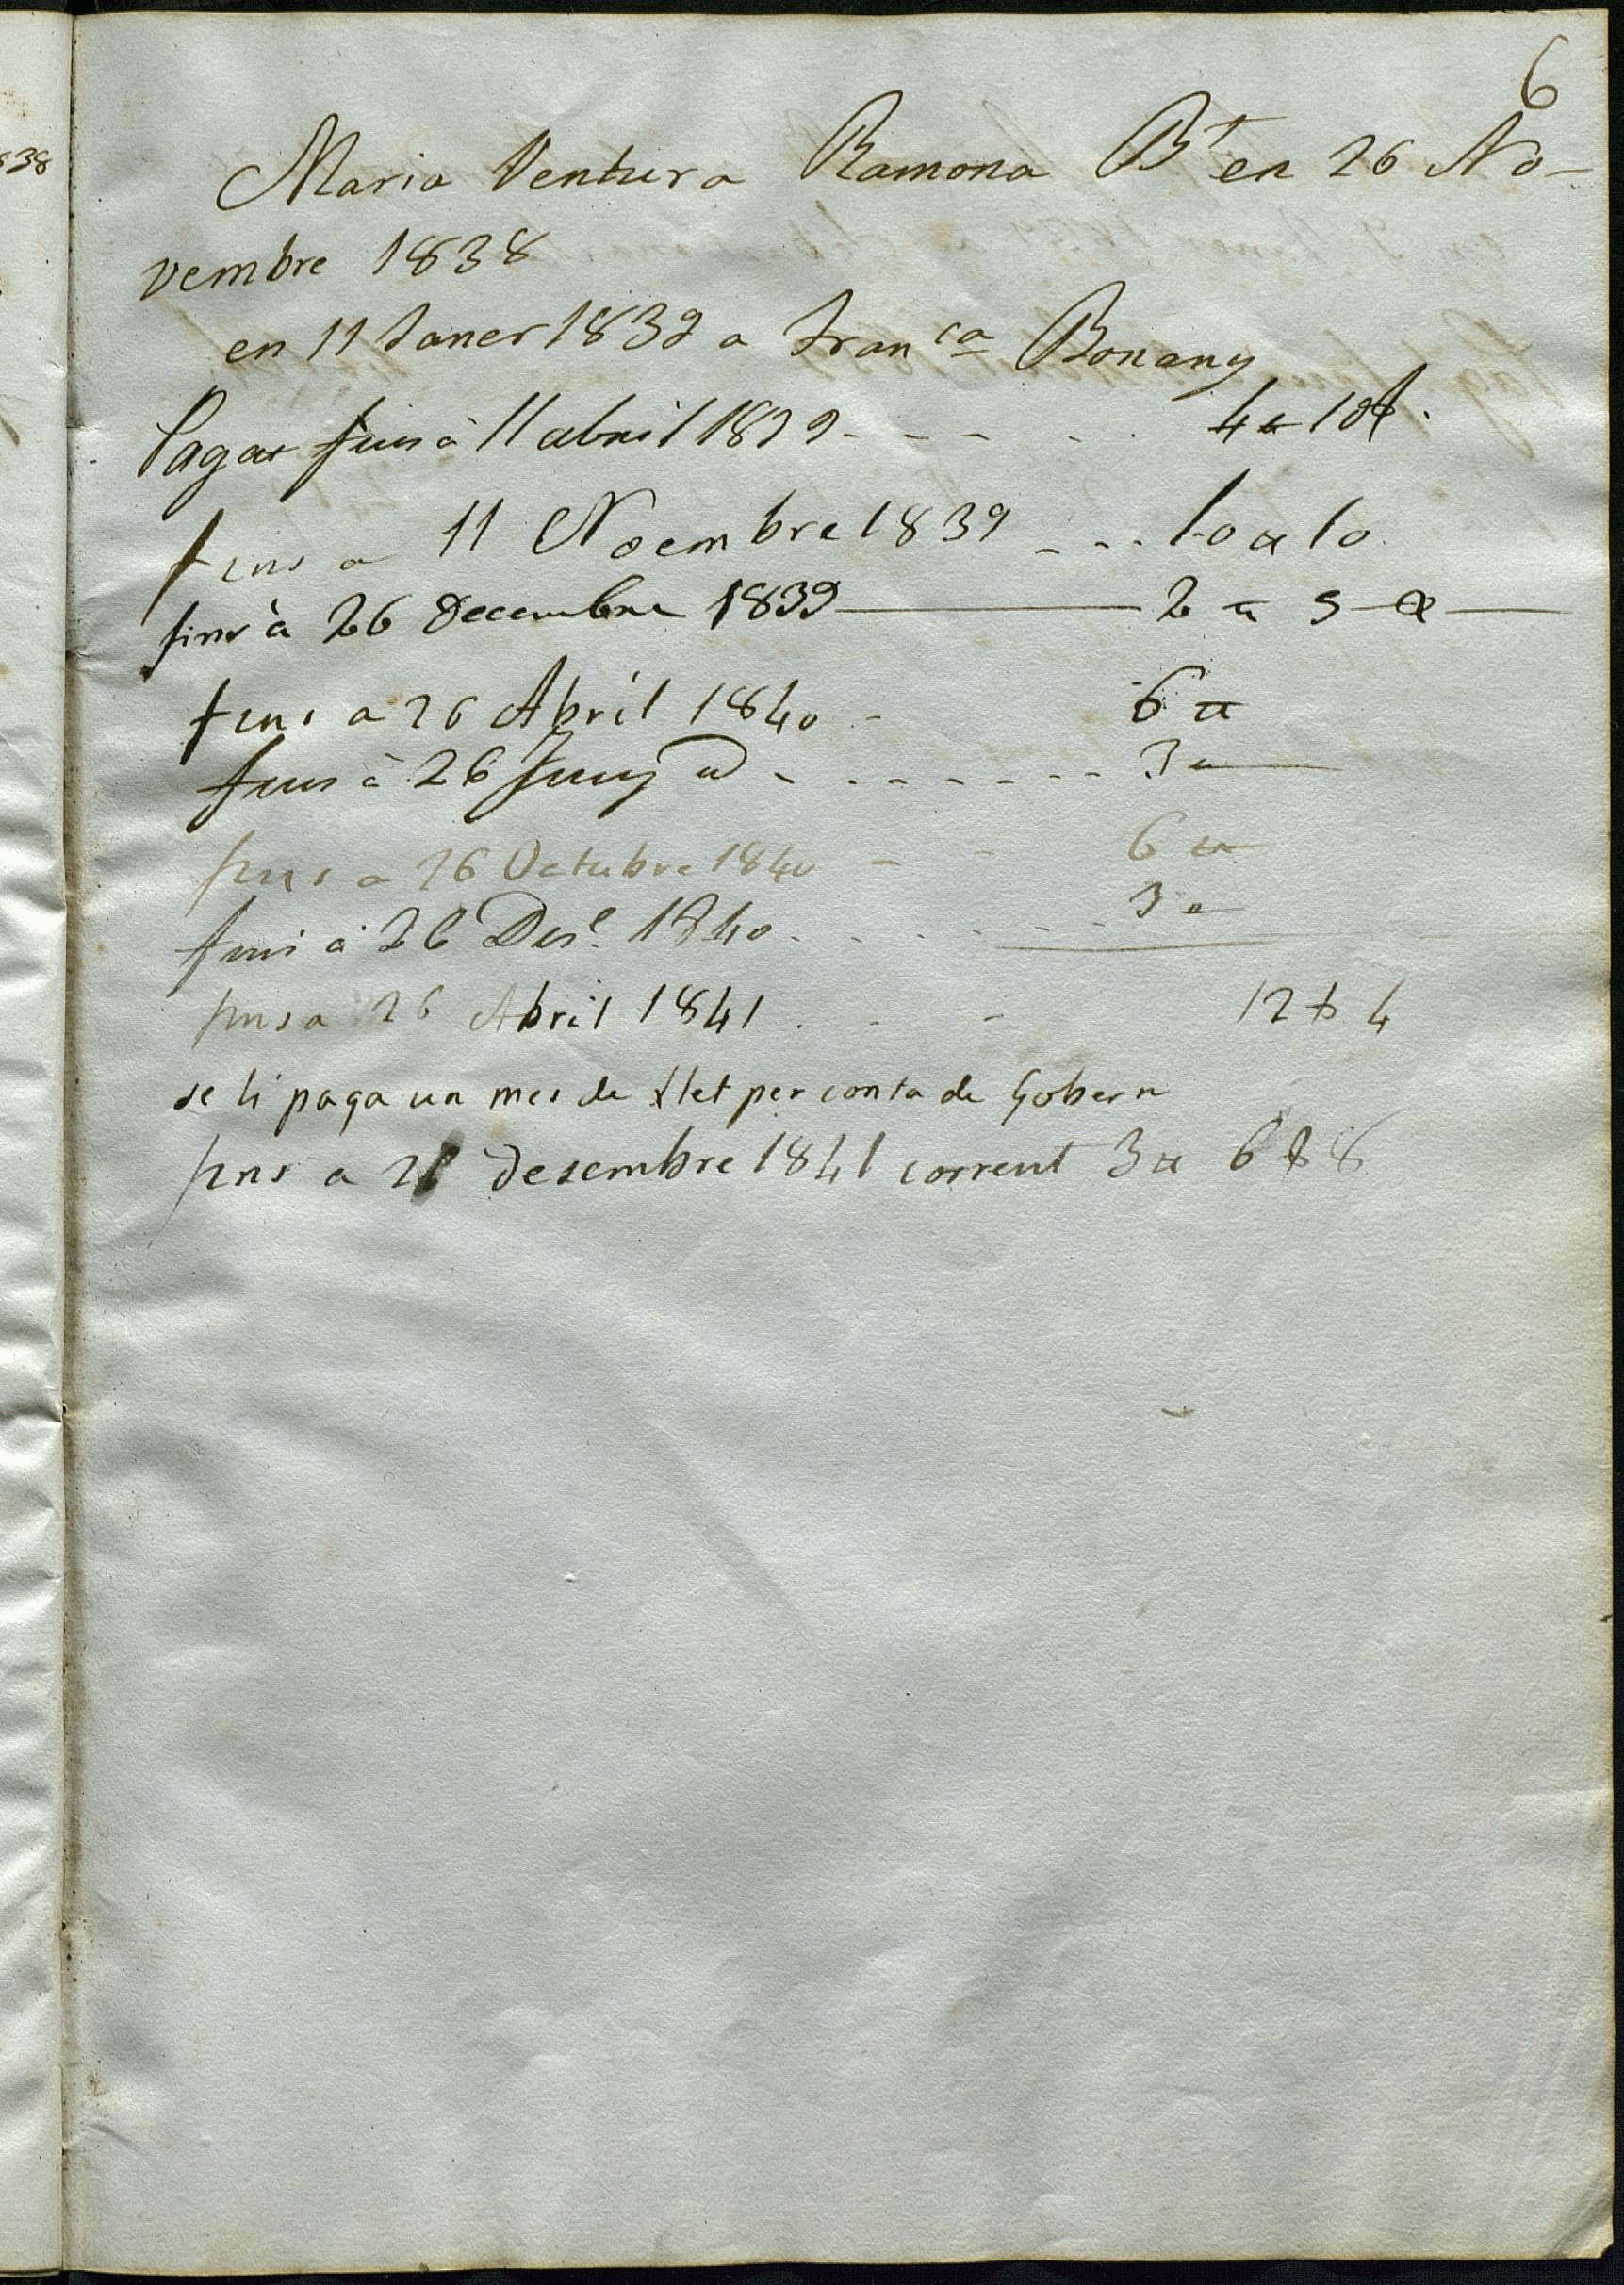 6
Maria Ventura Ramona Bt en 26 No-
vembre 1838
en 11 Janer 1839 a Franca Bonany
Pagat fins à 11 abril 1839 - - - - 4 ₶ 10
fins a 11 Noembre 1839 - - - 10 ₶ 10
fins à 26 Decembre 1839 — 2 ₶ 5
fins a 26 Abril 1840 - 6 ₶
fins à 26 Juny - - - - - - - 3 ₶
fins a 26 Octubre 1840 - - 6 ₶
fins à 26 Des.e 1840 - - - - 3 ₶
fins a 26 Abril 1841 - - - 12 4
se li paga un mes de llet per conta de Gobern
fins a desembre 1841 corrent 3 ₶ 6 8